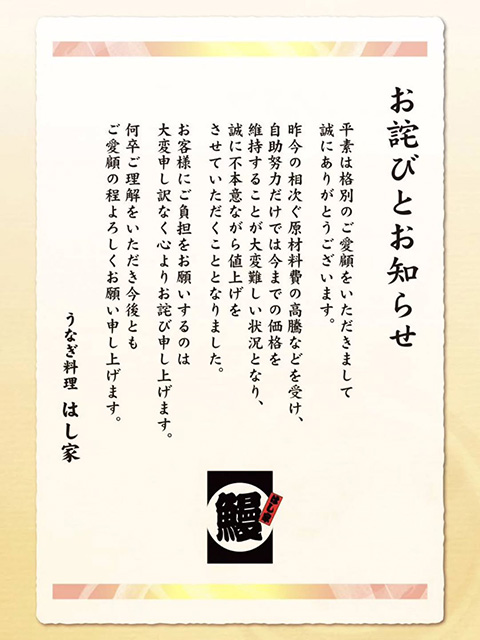 お詫びとお知らせ
平素は格別のご愛顧をいただきまして
誠にありがとうございます。
昨今の相次ぐ原材料費の高騰などを受け、
自助努力だけでは今までの価格を
維持することが大変難しい状況となり、
誠に不本意ながら値上げを
させていただくこととなりました。
お客様にご負担をお願いするのは
大変申し訳なく心よりお詫び申し上げます。
何卒ご理解をいただき今後とも
ご愛顧の程よろしくお願い申し上げます。
うなぎ料理 はし家
鰻
はし家